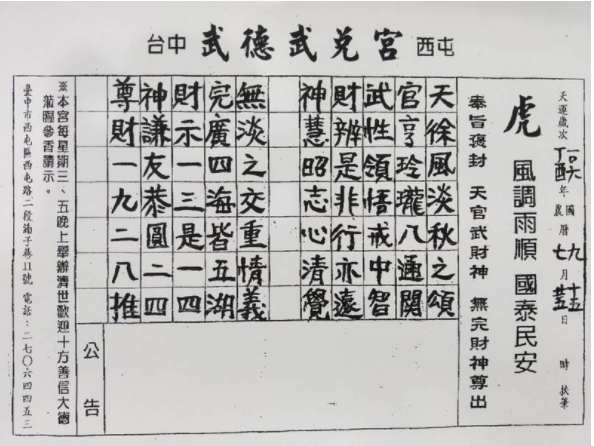 台中 武德武兌宮 西屯
天運歲次 一〇六 丁酉 年 國曆 九 月 十五 日 時 扶筆
農 七 廿五
虎 風調雨順 國泰民安
奉旨褒封 天官武財神 無完財神尊出
天徐風淡秋之頌
官亨玲瓏八通關
武性領悟戒中智
財辨是非行亦遠
神慧昭志心清覺
無淡之交重情義
完廣四海皆五湖
財示一三是一四
神謙友恭圓二四
尊財一九二八推
公告
※本宮每星期三、五晚上舉辦濟世歡迎十方善信大德
蒞臨參香請示。
臺中市西屯區西屯路二段湳子巷11號 電話：二七〇六四四五三